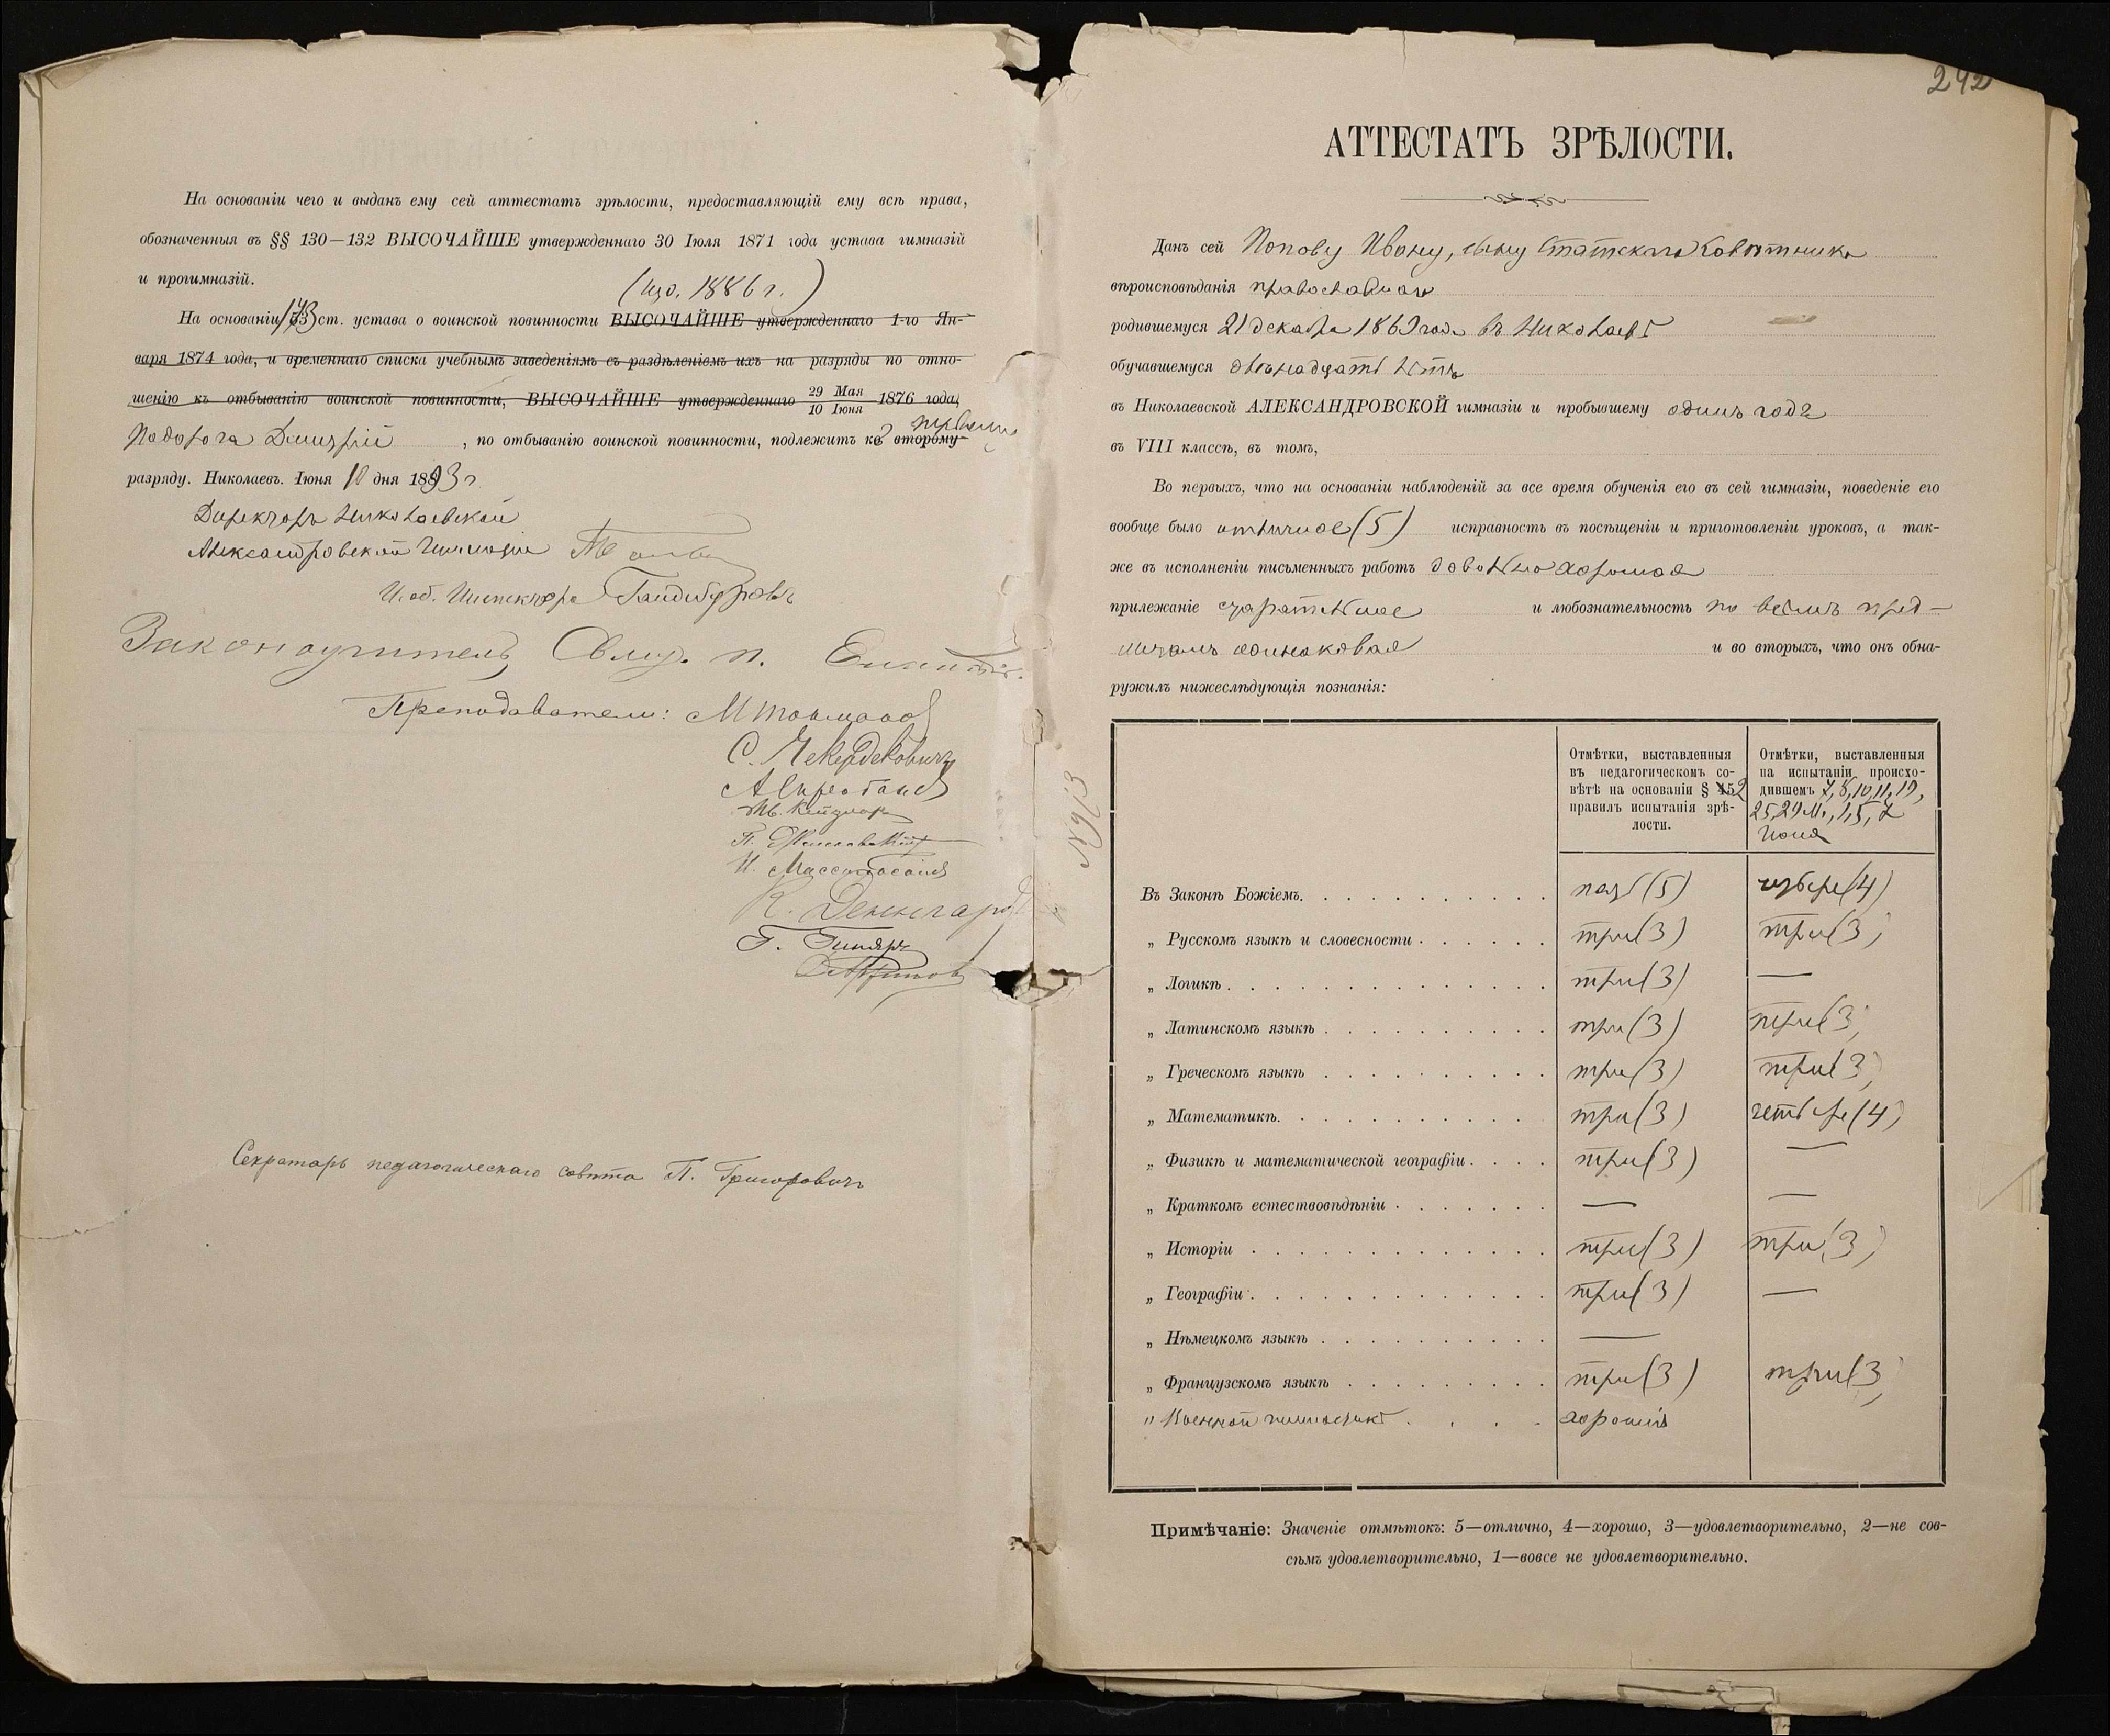 На основаніи чего и выданъ ему сей аттестатъ зрѣлости, предоставляющій ему всѣ права,
обозначенныя въ §§ 130—132 ВЫСОЧАЙШЕ утвержденнаго 30 Іюля 1871 года устава гимназій
и прогимназій.
(изд. 1886 г.)
На основаніи 173 ст. устава о воинской повинности ВЫСОЧАЙШЕ утвержденнаго 1-го Ян-
варя 1874 года, и временнаго списка учебнымъ заведеніямъ съ раздѣленіемъ ихъ на разряды по отно-
шенію къ отбыванію воинской повинности, ВЫСОЧАЙШЕ утвержденнаго 29 Мая 10 Іюня 1876 года,
первому
Подорога Дмитрій, по отбыванію воинской повинности, подлежитъ ко второму
разряду. Николаевъ. Іюня 10 дня 1893 г
Директоръ Николаевской
Александровской Гимназіи
И. об. Инспектора Гандибуровъ
Законоучитель, Свящ. п.
Преподаватели:
С. Чекердековичъ
К. Денгардъ
Секретарь педагогическаго совѣта П. Григоровичъ
242
АТТЕСТАТЪ ЗРѢЛОСТИ.
Данъ сей Попову Ивану, сыну Статскаго Совѣтника
вѣроисповѣданія православнаго
родившемуся 21 декабря 1869 года въ Николаевѣ
обучавшемуся двѣнадцать лѣтъ
въ Николаевской АЛЕКСАНДРОВСКОЙ гимназіи и пробывшему одинъ годъ
въ VIII классѣ, въ томъ,
Во первыхъ, что на основаніи наблюденій за все время обученія его въ сей гимназіи, поведеніе его
вообще было отличное (5) исправность въ посѣщеніи и приготовленіи уроковъ, а так-
же въ исполненіи письменныхъ работъ довольно хорошая
прилежаніе старательное и любознательность по всѣмъ пред-
метамъ одинаковая и во вторыхъ, что онъ обна-
ружилъ нижеслѣдующія познанія:
№ 913
Отмѣтки, выставленныя въ педагогическомъ со-
вѣтѣ на основаніи § 52
правилъ испытанія зрѣ-
лости.
Отмѣтки, выставленныя
на испытаніи, происхо-
дившемъ 7, 8, 10, 11, 19,
25, 29 М., 1, 5, 7
Іюня
Въ Законѣ Божіемъ. пять (5) четыре (4)
„ Русскомъ языкѣ и словесности три (3) три (3)
„ Логикѣ три (3) —
„ Латинскомъ языкѣ три (3) три (3)
„ Греческомъ языкѣ три (3) три (3)
„ Математикѣ. три (3) четыре (4)
„ Физикѣ и математической географіи. три (3) —
„ Краткомъ естествовѣдѣніи — —
„ Исторіи три (3) три (3)
„ Географіи три (3) —
„ Нѣмецкомъ языкѣ —
„ Французскомъ языкѣ три (3) три (3)
„ Военной гимнастикѣ хорошіе
Примѣчаніе: Значеніе отмѣтокъ: 5—отлично, 4—хорошо, 3—удовлетворительно, 2—не сов-
сѣмъ удовлетворительно, 1—вовсе не удовлетворительно.